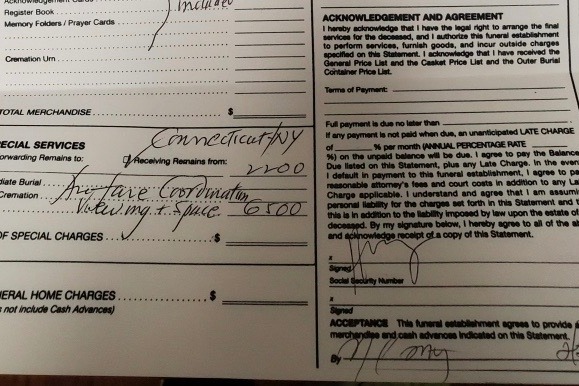 Acknowledgement Cards
Register Book
Memory Folders / Prayer Cards
Included
Cremation Urn
TOTAL MERCHANDISE $
ECIAL SERVICES
Connecticut/NY
orwarding Remains to:
Receiving Remains from:
2200
diate Burial
Cremation
Airfare Coordination
Viewing + Space 6500
OF SPECIAL CHARGES $
NERAL HOME CHARGES $
s not include Cash Advances)
ACKNOWLEDGEMENT AND AGREEMENT
I hereby acknowledge that I have the legal right to arrange the final
services for the deceased, and I authorize this funeral establishment
to perform services, furnish goods, and incur outside charges
specified on this Statement. I acknowledge that I have received the
General Price List and the Casket Price List and the Outer Burial
Container Price List.
Terms of Payment:
Full payment is due no later than
If any payment is not paid when due, an unanticipated LATE CHARGE
of % per month (ANNUAL PERCENTAGE RATE
%) on the unpaid balance will be due. I agree to pay the Balance
Due listed on this Statement, plus any Late Charge. In the even
I default in payment to this funeral establishment, I agree to pa
reasonable attorney's fee and court costs in addition to any La
Charge applicable. I understand and agree that I am assumi
personal liability for the charges set forth in this Statement and t
this is in addition to the liability imposed by law upon the estate of
deceased. By my signature below, I hereby agree to all of the al
and acknowledge receipt of a copy of this Statement.
x
Signed
Social Security Number
x
Signed
ACCEPTANCE This funeral establishment agrees to provide
merchandise and cash advances indicated on this Statement.
By